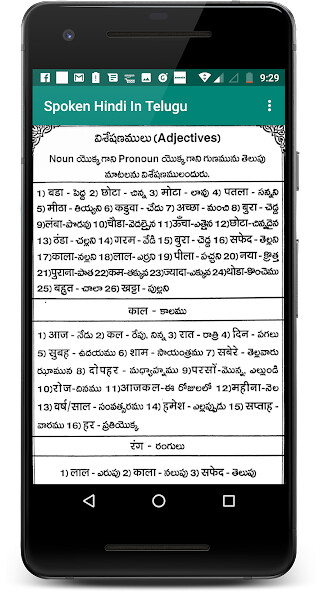 9:29
Spoken Hindi In Telugu
విశేషణములు (Adjectives)
Noun యొక్క గాని Pronoun యొక్క గాని గుణమును తెలుపు
మాటలను విశేషణములందురు.
1) बडा - పెద్ద 2) छोटा - చిన్న 3) मोटा - లావు 4) पतला - సన్నని
5) मीठा - తియ్యని 6) कडुवा - చేదు 7) अच्छा - మంచి 8) बुरा - చెడ్డ
9) लंबा-పొడవు 10) चौडा-వెడల్పైన 11) ऊँचा-ఎత్తైన 12) छोटा-చిన్నదైన
13) ठंडा - చల్లని 14) गरम - వేడి 15) बुरा - చెడ్డ 16) सफेद - తెల్లని
17) काला-నల్లని 18) लाल-ఎర్రని 19) पीला - పచ్చని 20) नया - క్రొత్త
21) पुराना-పాత 22) कम-తక్కువ 23) ज्यादा-ఎక్కువ 24) थोडा-కొంచెము
25) बहुत - చాలా 26) खट्टा - పుల్లని
काल - కాలము
1) आज - నేడు 2) कल - రేపు, నిన్న 3) रात - రాత్రి 4) दिन - పగలు
5) सुबह - ఉదయము 6) शाम - సాయంత్రము 7) सबेरे - తెల్లవారు
ఝామున 8) दोपहर - మధ్యాహ్నము 9) परसों-మొన్న, ఎల్లుండి
10) रोज-దినము 11) आजकल-ఈ రోజులలో 12) महीना-నెల
13) वर्ष/साल - సంవత్సరము 14) हमेश - ఎల్లప్పుడు 15) सप्ताह -
వారము 16) हर - ప్రతియొక్క
रंग - రంగులు
1) लाल - ఎరుపు 2) काला - నలుపు 3) सफेद - తెలుపు